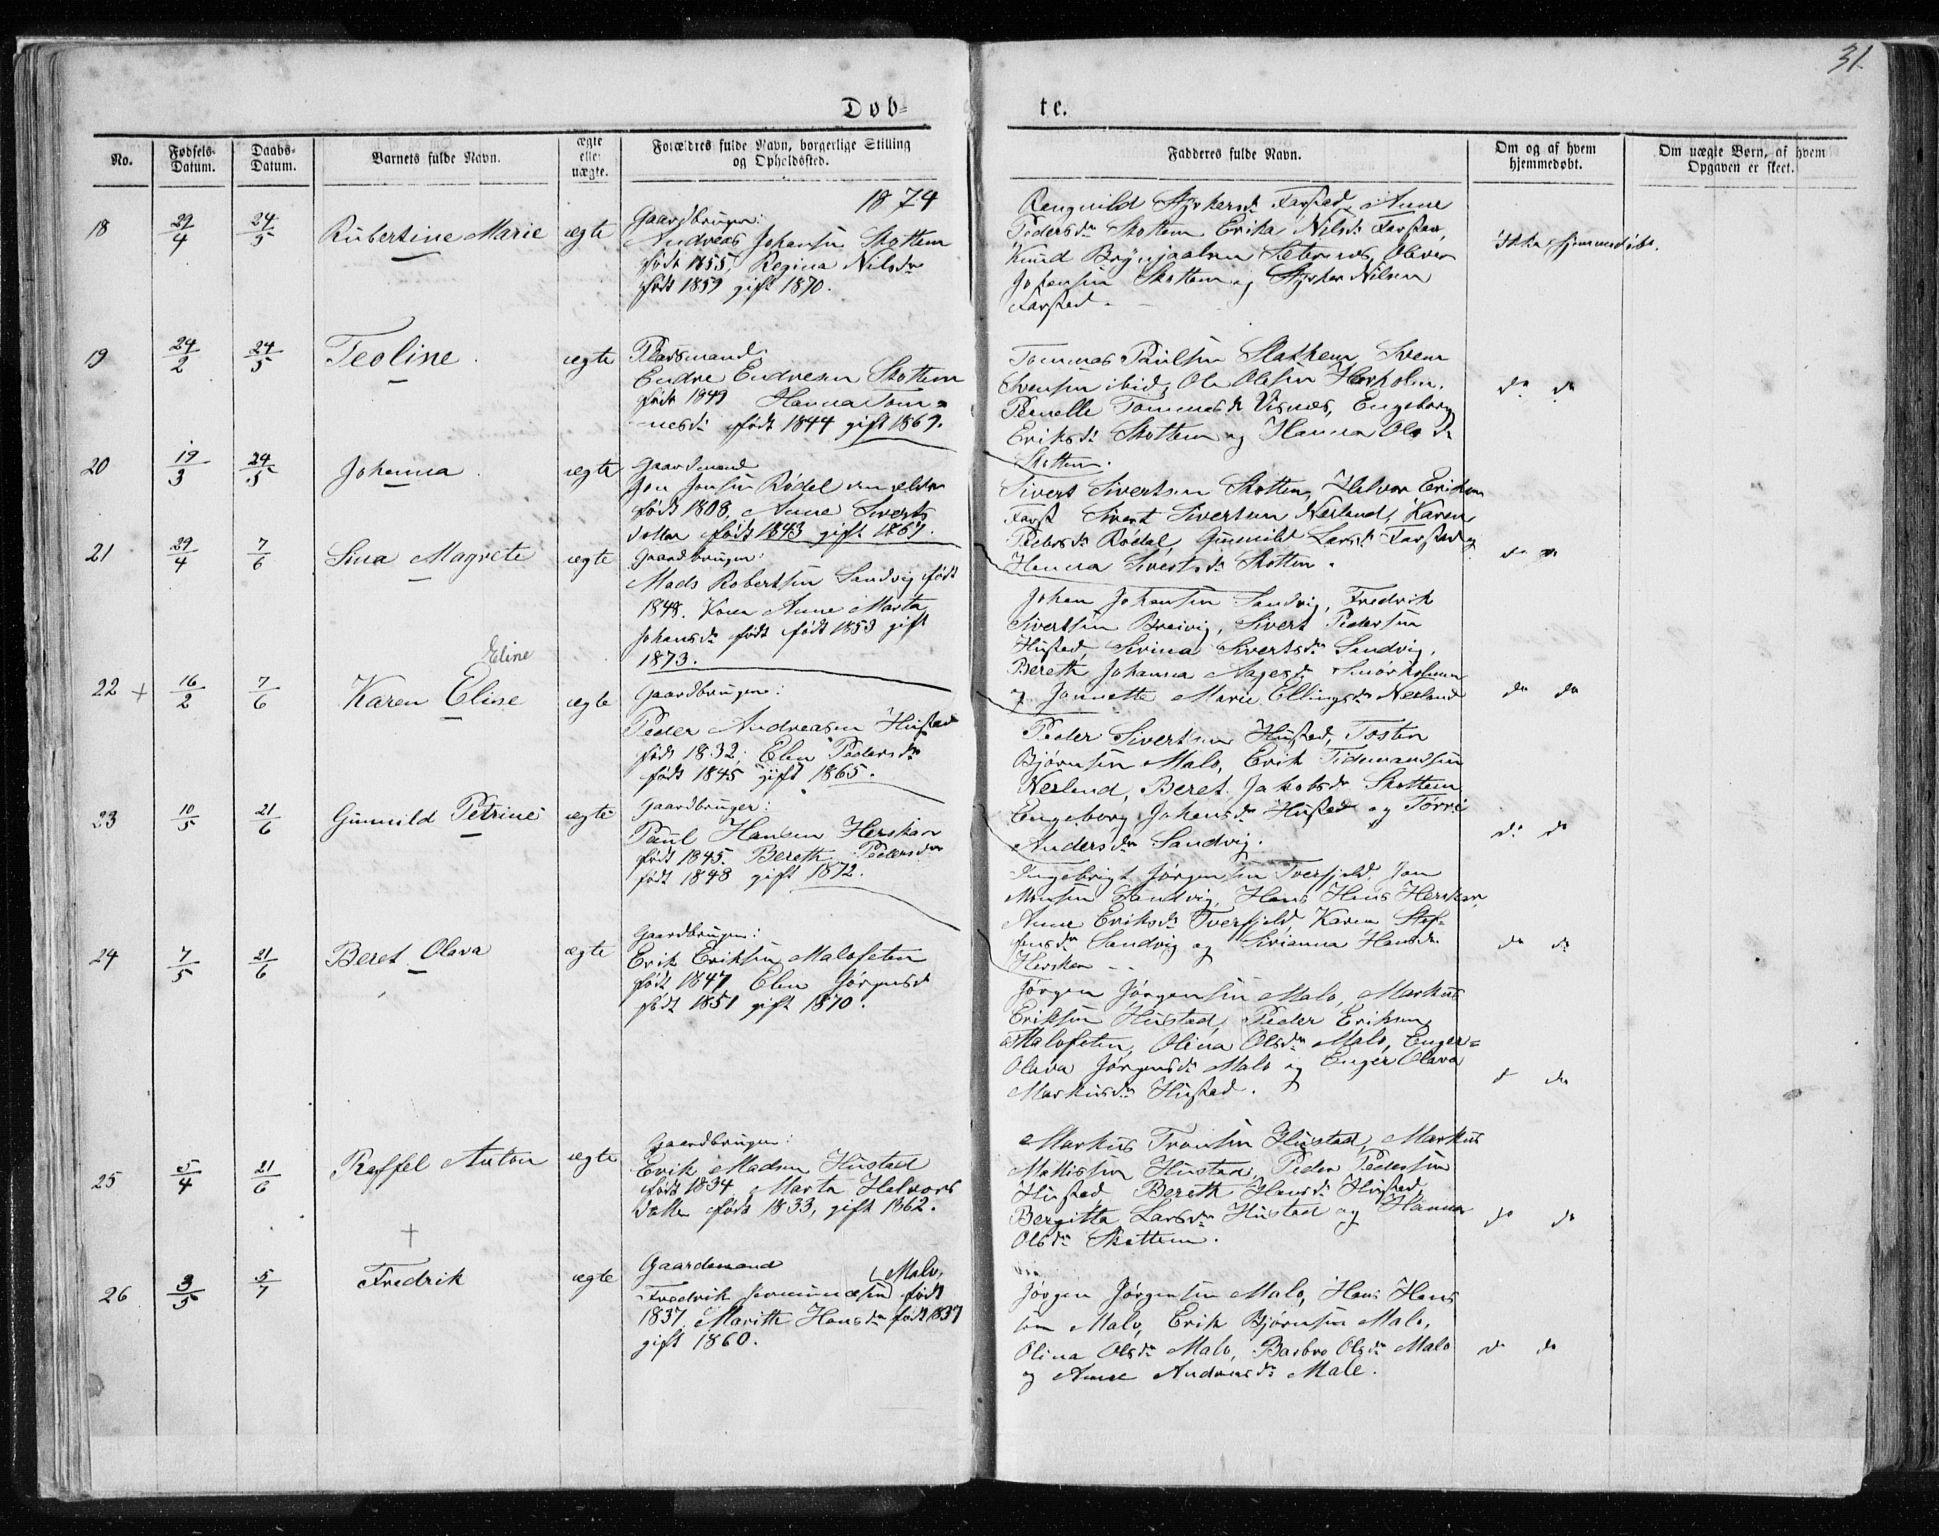 31.
Døb=
te.
No.
Fødsels-
Datum.
Daabs-
Datum.
Barnets fulde Navn.
ægte
eller
uægte.
Forældres fulde Navn, borgerlige Stilling
og Opholdssted.
Fadderes fulde Navn.
Om og af hvem
hjemmedøbt.
Om uægte Børn, af hvem
Opgaven er skeet.
1874
18
29/4
24/5
Rubertine Marie
ægte
Gaardbruger:
Andreas Johansen Skottem
født 1855, Regina Nilsdr
født 1859 gift 1870.
Farsted Anne
Pedersdr Skottem Erika Nilsdr Farstad,
Knud Oliver
Johansen Skottem og Styrker Nilsen
Farstad
Ikke hjemmedøbt.
19
24/2
24/5
Teoline
ægte
Pladsmand:
Endre Endresen Skottem
født 1849 Hanna Tom=
mesdr født 1844 gift 1869.
Tommas Paulsen Svein
Svensen ibid, Ole Olesen Herskolm.
Pernelle Tommesdr Visnes, Engeborg
Eriksdr Skottem og Hanna Olsdr
Skottem.
do do
20
19/3
24/5
Johanna
ægte
Gaardmand
Jon Jonsen Rødal den ældre
født 1808, Anne Siverts
datter født 1843 gift 1867.
Sivert Sivertsen Skottem, Halvor Eriksen
Farst Sivert Sivertsen Nerland, Karen
Pedersdr Rødal, Gunnild Larsdr Farstad og
Hanna Sivertsdr Skottem.
do do
21
29/4
7/6
Sina Magrete
ægte
Gaardbruger:
Mads Robertsen Sandvig født
1848. Kone Anne Marta
Johansdr født født 1853 gift
1873.
Johan Johansen Sandvig, Fredrik
Sivertsen Breivig, Sivert Pedersen
Hustad, Sivina Sivertsdr Sandvig,
Bereth Johanna Aagesdr
og Jonnette Marie Ellingsdr Nerland
do do
Eline
22 +
16/2
7/6
Karen Eline
ægte
Gaardbruger:
Peder Andreasen Hustad
født 1832, Elen Pedersdr
født 1845 gift 1865.
Peder Sivertsen Hustad, Tosten
Bjørnsen Malo, Erik Tidemandsen
Nerland, Beret Jakobsdr Skottem
Engeborg Johansdr Hustad og Torri
Andersdr Sandvig.
do do
23
10/5
21/6
Gunnild Petrine
ægte
Gaardbruger:
Paul Hansen Herskar
født 1845. Bereth Pedersdr
født 1848 gift 1872.
Ingebrigt Jørgensen Tverfjeld, Jon
Monsen Sandvig, Hans Hans Herskar,
Anne Eriksdr Tverfjeld Karen Stef=
fensdr Sandvig og Sivianna Hansdr
Herskar
do do
24
7/5
21/6
Beret Olava
ægte
Gaardbruger:
Erik Eriksen Malofeten
født 1847 Elen Jørgensdr
født 1851 gift 1870.
Jørgen Jørgensen Malo, Markus
Eriksen Hustad, Peder Eriksen
Malofeten, Olina Olsdr Malo, Enger=
Olava Jørgensdr Malo og Enger Olava
Markusdr Hustad.
d do
25
5/4
21/6
Raffel Anton
ægte
Gaardbruger:
Erik Madsen Hustad
født 1834, Marta Halvors
datter født 1833, gift 1862.
Markus Tronsen Hustad, Markus
Mattissen Hustad, Peder Pedersen
Hustad, Bereth Hansdr Hustad
Bergitta Larsdr Hustad og Hanna
Olsdr Skottem.
do do
+
26
3/5
5/7
Fredrik
ægte
Gaardmand
(Malo,
Fredrik født
1837, Marith Hansdr født 1837
gift 1860.
Jørgen Jørgensen Malo, Hans Hans
sen Malo, Erik Bjørnsen Malo,
Olina Olsdr Malo, Barbro Olsdr Malo
og Anne Andreasdr Malo.
do do